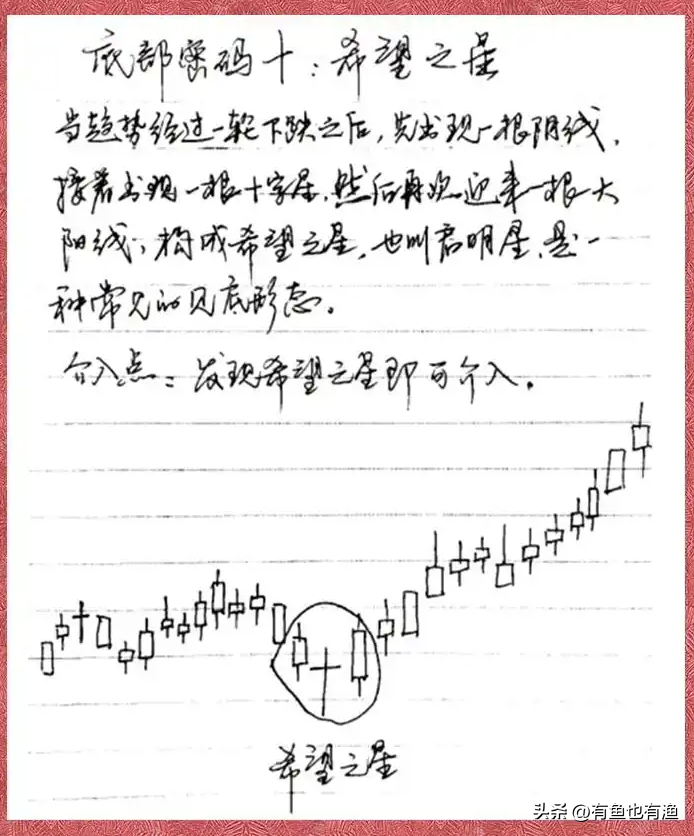 底部密码十：希望之星
当趋势经过一轮下跌之后，先出现一根阴线，
接着出现一根十字星，然后再次迎来一根大
阳线，构成希望之星，也叫启明星，是一
种常见的见底形态。
介入点：发现希望之星即可介入。
希望之星
头条 @有鱼也有渔